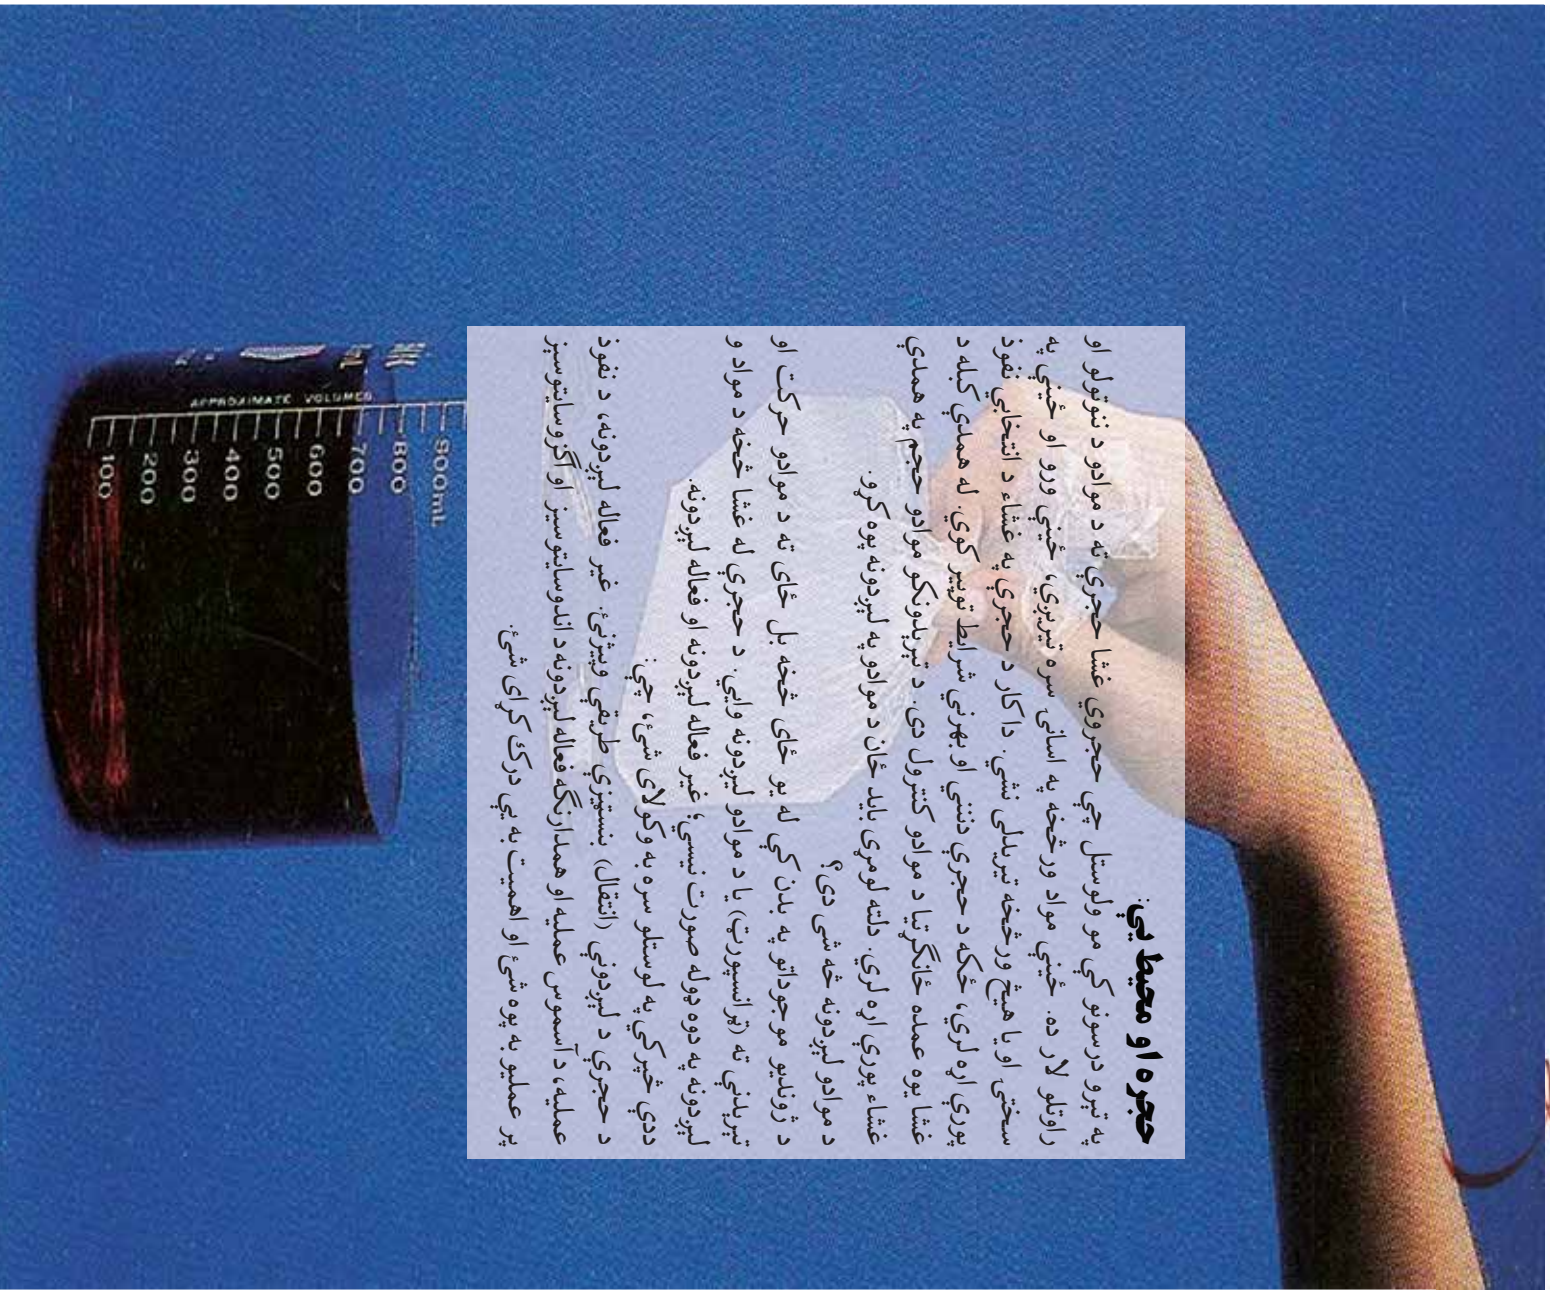 حجره او محيط يې:
په تېرو درسونو کې مو ولوستل چې حجروي غشا حجرې ته د موادو د ننوتولو او
راوتلو لار ده. ځينې مواد ورڅخه په اسانۍ سره تېرېږي، ځينې ورو او ځينې په
سختۍ او يا هيڅ ورڅخه تېرېدلی نشي. دا کار د حجرې په غشاء د انتخابي نفوذ
پورې اړه لري، ځکه د حجرې دننني او بهرني شرايط توپير کوي. له همدې کبله د
غشا يوه عمده ځانګړتيا د موادو کنترول دی. د تېرېدونکو موادو حجم په همدې
غشاء پورې اړه لري. دلته لومړی بايد ځان د موادو په لېږدونه پوه کړو.
د موادو لېږدونه څه شی دی؟
د ژونديو موجوداتو په بدن کې له يو ځای څخه بل ځای ته د موادو حرکت او
تېرېدنې ته (ټرانسپورټ) يا د موادو لېږدونه وايي. د حجرې له غشا څخه د مواد و
لېږدونه په دوه ډوله صورت نيسي؛ غير فعاله لېږدونه او فعاله لېږدونه.
ددې څپرکي په لوستلو سره به وکولای شئ، چې:
د حجرې د لېږدونې (انتقال) بنسټيزې طريقې وپېژنئ. غير فعاله لېږدونه، د نفوذ
عمليه، د آسموس عمليه او همدارنګه فعاله لېږدونه د اندوسايتوسيز او اګزوسايتوسيز
پر عمليو به پوه شئ او اهميت به يې درک کړای شئ.
APPROXIMATE VOLUMES
900mL
800
700
600
500
400
300
200
100